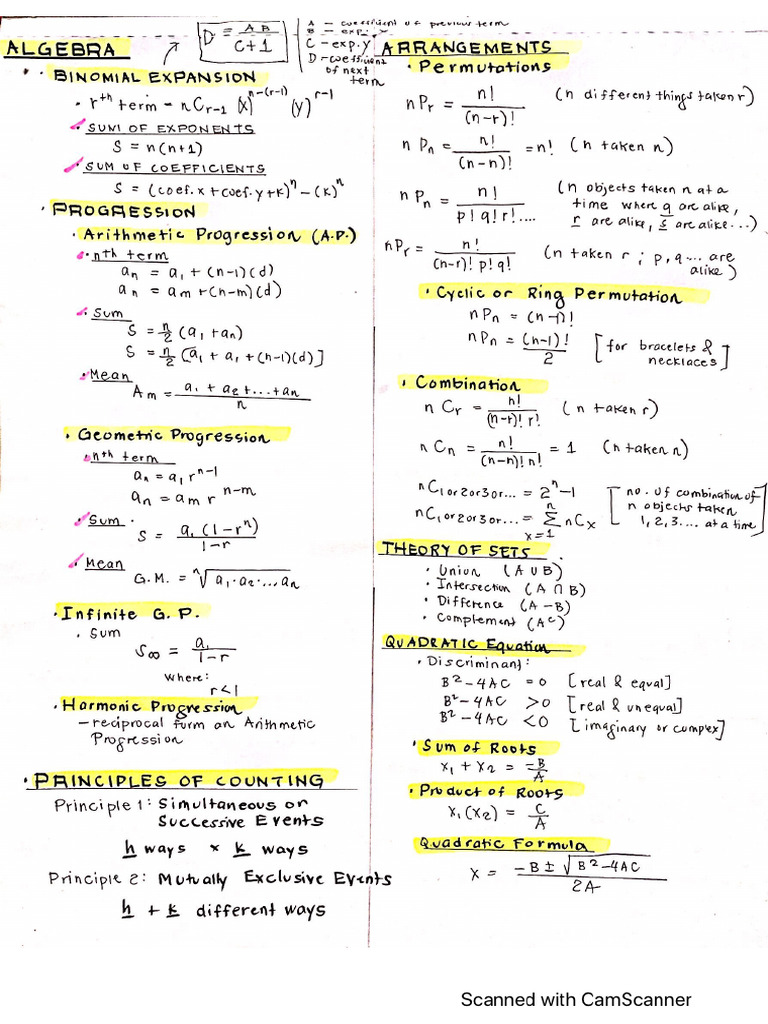 D = AB / C+1
A - coefficient of previous term
B - exp. x
C - exp. y
D - coefficient of next term
ALGEBRA
• BINOMIAL EXPANSION
• rᵗʰ term - nCr-1 (x)ⁿ⁻⁽ʳ⁻¹⁾ (y)ʳ⁻¹
• SUM OF EXPONENTS
S = n(n+1)
• SUM OF COEFFICIENTS
S = (coef. x + coef. y + k)ⁿ - (k)ⁿ
• PROGRESSION
• Arithmetic Progression (A.P.)
• nth term
aₙ = a₁ + (n-1)(d)
aₙ = aₘ + (n-m)(d)
• Sum
S = n/2 (a₁ + aₙ)
S = n/2 [a₁ + a₁ + (n-1)(d)]
• Mean
Aₘ = a₁ + a₂ + ... + aₙ / n
• Geometric Progression
• nth term
aₙ = a₁ rⁿ⁻¹
aₙ = aₘ rⁿ⁻ᵐ
• Sum
S = a₁ (1 - rⁿ) / 1 - r
• Mean
G.M. = ⁿ√a₁ · a₂ · ... aₙ
• Infinite G. P.
• Sum
S∞ = a₁ / 1 - r
where:
r < 1
• Harmonic Progression
- reciprocal form an Arithmetic
Progression
• PRINCIPLES OF COUNTING
Principle 1: Simultaneous or
Successive Events
h ways × k ways
Principle 2: Mutually Exclusive Events
h + k different ways
ARRANGEMENTS
• Permutations
nPr = n! / (n-r)! (n different things taken r)
nPn = n! / (n-n)! = n! (n taken n)
nPn = n! / p! q! r! .... (n objects taken n at a
time where q are alike,
r are alike, s are alike...)
nPr = n! / (n-r)! p! q! (n taken r ; p, q ... are
alike)
• Cyclic or Ring Permutation
nPn = (n-1)!
nPn = (n-1)! / 2 [for bracelets &
necklaces]
• Combination
nCr = n! / (n-r)! r! (n taken r)
nCn = n! / (n-n)! n! = 1 (n taken n)
nC1 or 2 or 3 or... = 2ⁿ - 1 [no. of combination of
nC1 or 2 or 3 or... = ⁿ∑ₓ₌₁ nCx n objects taken
1, 2, 3.... at a time]
THEORY OF SETS
• Union (A ∪ B)
• Intersection (A ∩ B)
• Difference (A - B)
• Complement (Aᶜ)
QUADRATIC Equation
• Discriminant:
B² - 4AC = 0 [real & equal]
B² - 4AC > 0 [real & unequal]
B² - 4AC < 0 [imaginary or complex]
• Sum of Roots
x₁ + x₂ = -B / A
• Product of Roots
x₁(x₂) = C / A
Quadratic Formula
x = -B ± √B² - 4AC / 2A
Scanned with CamScanner